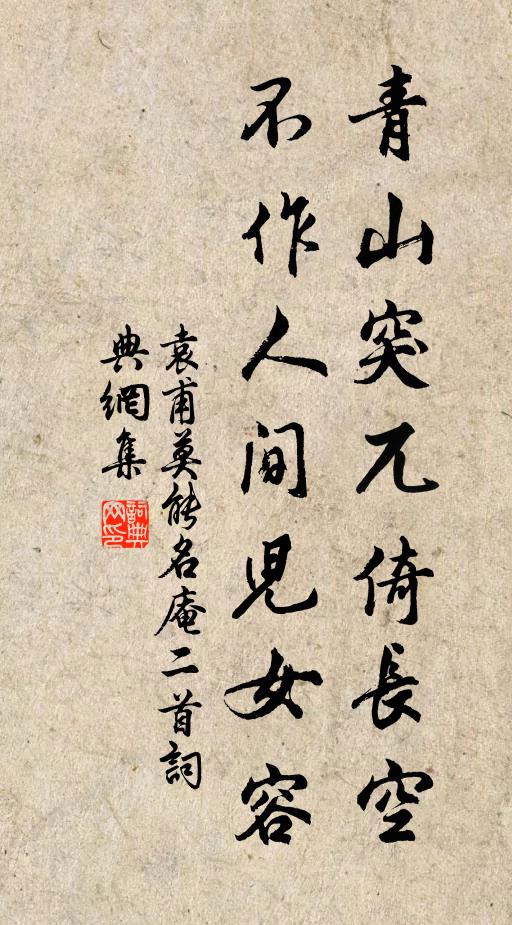 青山突兀倚長空
不作人間児女容
袁甫莫能名庵二首詞
典網集
詞典
网印